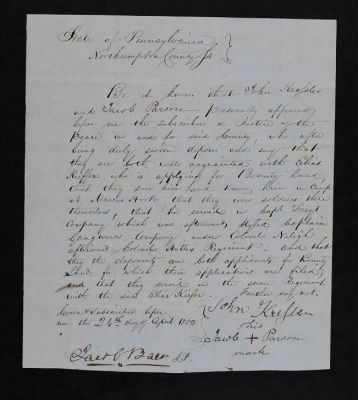 State of Pennsylvania
Northampton County Ss
Be it known that John Kressler
and Jacob Parson personally appeared
before me the subscriber a Justice of the
peace in and for said County, who after
being duly sworn depose and say that
they are both well acquainted with Elias
Keifer who is applying for Bounty Land
that they saw and knew him in Camp
at Marcus Hook that they were soldiers there
themselves, that he served in Capt Freys
Company which was afterwards styled Captain
Company under Colonel
afterward Colonel Regiment and that
they the deponents are both applicants for Bounty
Land, for which their applications are filed,
and that they served in the same Regiment
with the said Elias Keifer. Further say not.
Sworn & Subscribed before
me the 24th day of April 1852
John Kressler
his
Jacob + Parson
mark
Jacob Baer J.P.